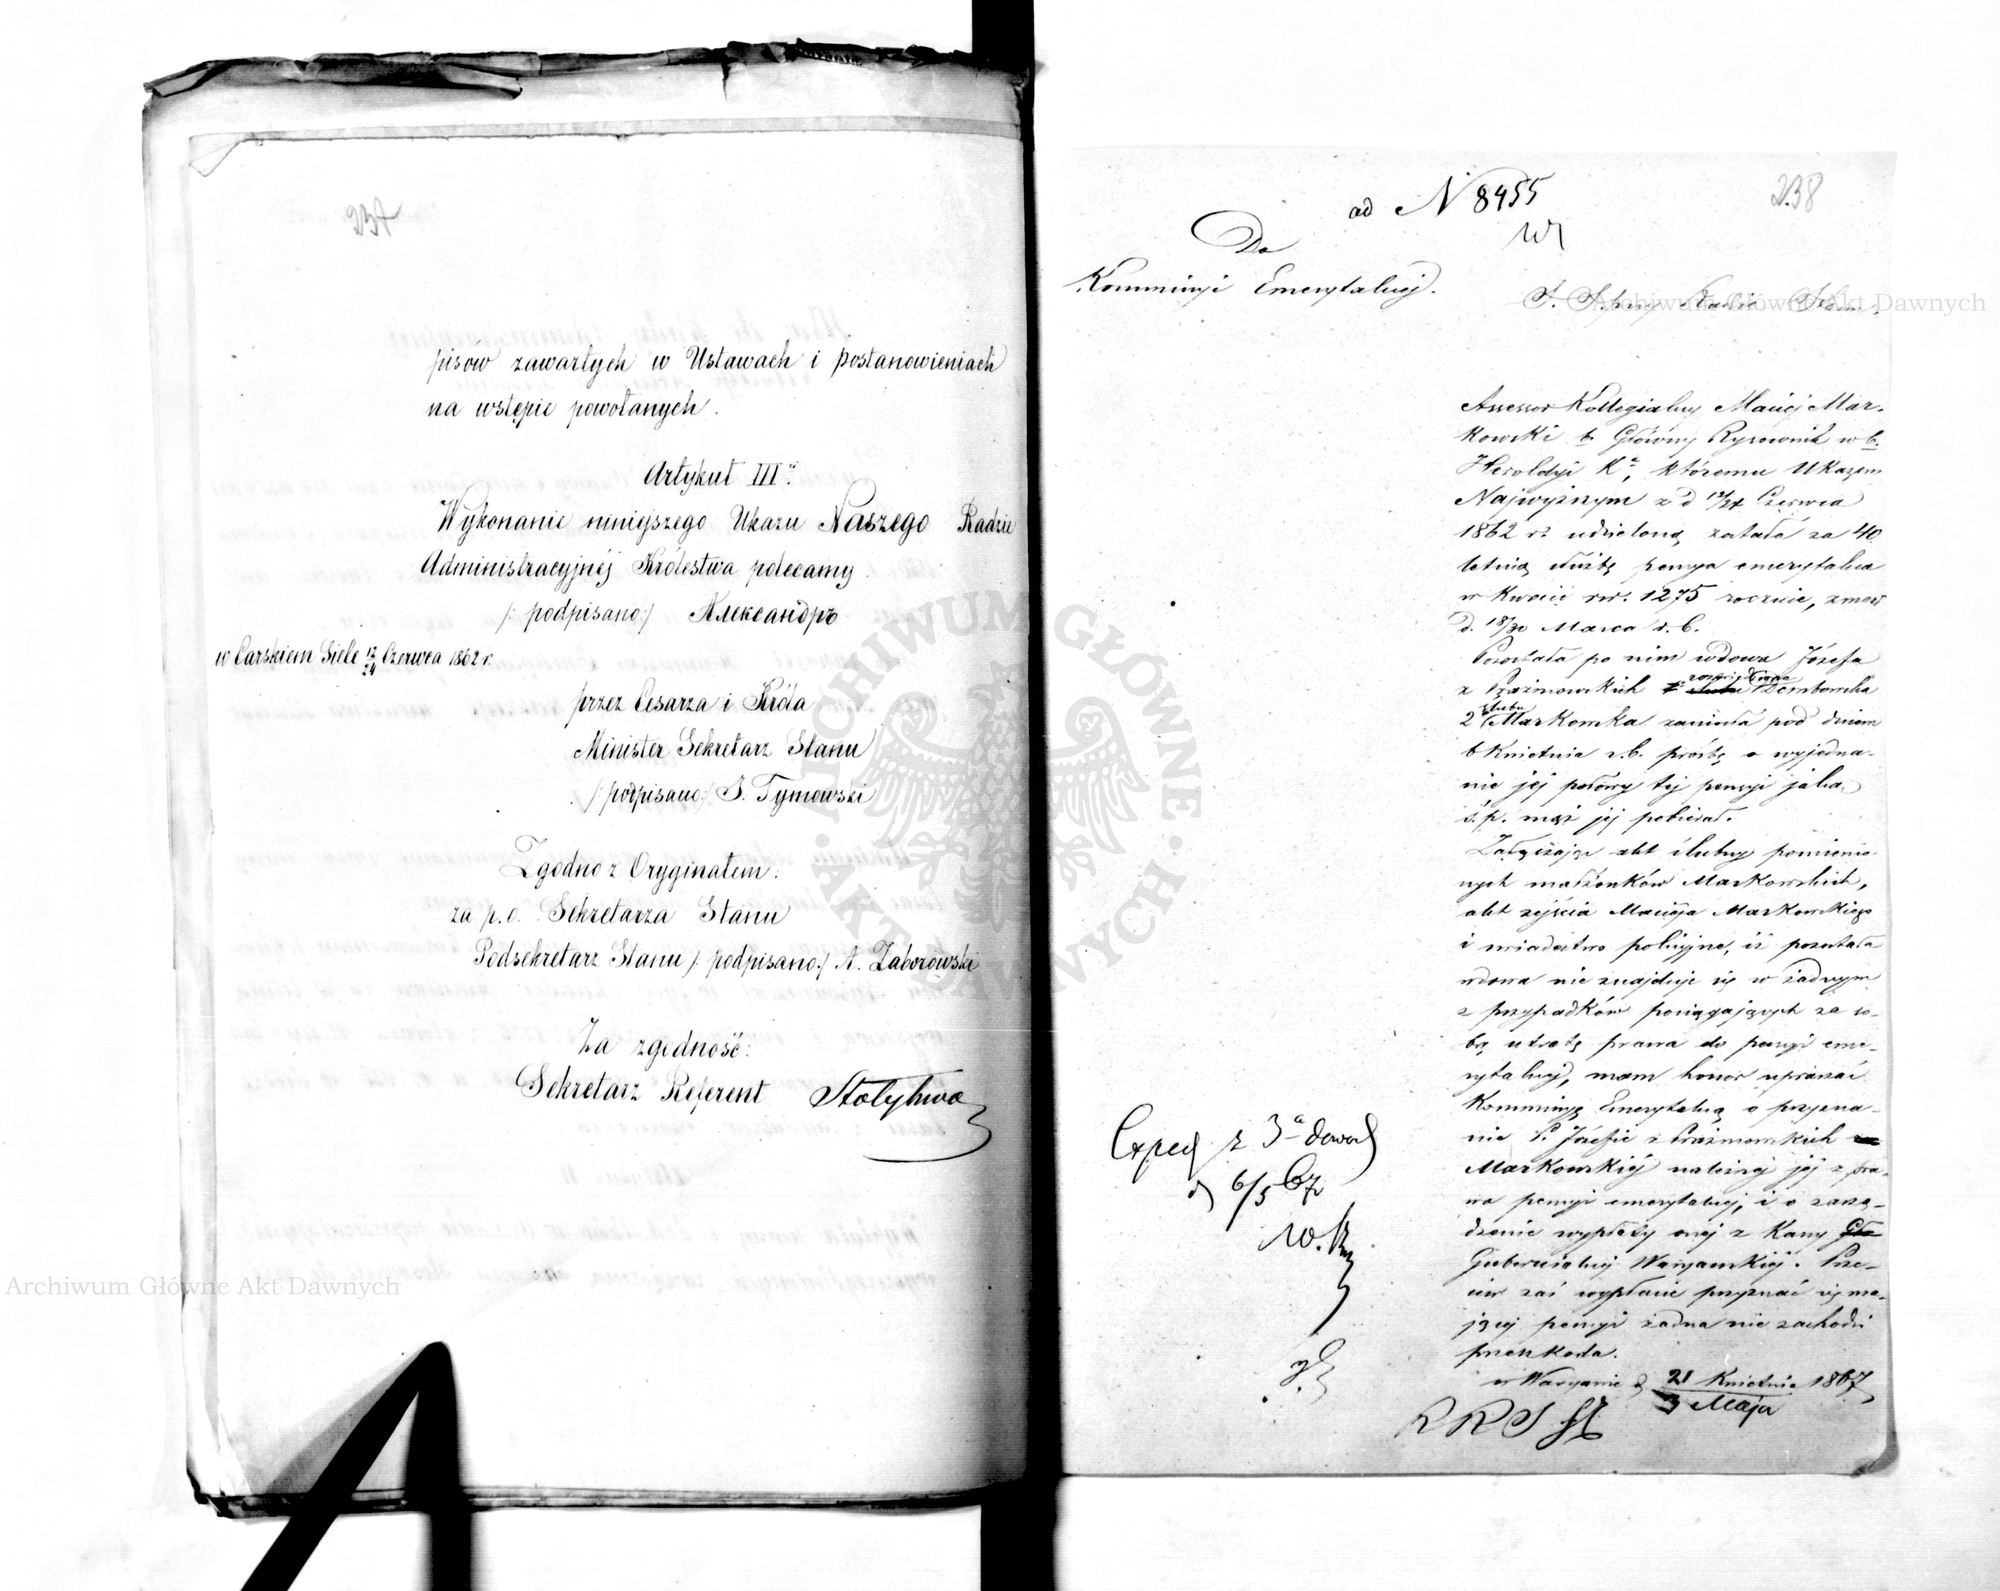 237
pisów zawartych w Ustawach i postanowieniach
na wstępie powołanych.
Artykuł III.
Wykonanie niniejszego Ukazu Naszego Radzie
Administracyjnéj Królestwa polecamy.
/: podpisano:/ Александръ
w Carskiem Siele 12/24 Czerwca 1862 r.
przez Cesarza i Króla
Minister Sekretarz Stanu
/: podpisano:/ J. Tymowski
Zgodno z Oryginałem:
za p.o. Sekretarza Stanu
Podsekretarz Stanu /: podpisano:/ A. Zaborowski
Za zgodność:
Sekretarz Referent
238
ad N 8455
Do
Kommissyi Emerytalnej.
Assessor Kollegialny Maciej Mar-
kowski b. Główny Rysownik w b.
Heroldyi Kr, któremu Ukazem
Najwyższym z d 12/24 Czerwca
1862 r. udzieloną została za 40
letnią służbę pensya emerytalna
w kwocie rs. 1275 rocznie, zmarł
d. 18/30 Marca r. b.
Pozostała po nim wdowa Józefa
z Prażmowskich Dembowska
2 ślubu Markowska zaniosła pod dniem
6 Kwietnia r.b. prośbę o wyjedna-
nie jej połowy tej pensyi jaką
ś.p. mąż jej pobierał.
Załączając akt ślubny pomienio-
nych małżonków Markowskich,
akt zejścia Macieja Markowskiego
i świadectwo policyjne, iż pozostała
wdowa nie znajduje się w żadnym
z przypadków pociągających za so-
bą utratę prawa do pensyi eme-
rytalnej, mam honor upraszać
Kommissyę Emerytalną o przyzna-
nie P. Józefie z Prażmowskich
Markowskiej należnej jej z pra-
wa pensyi emerytalnej, i o zarzą-
dzenie wypłaty onej z Kassy
Gubernialnej Warszawskiej. Prze-
ciw zaś wypłacie przyznać się ma-
jącej pensyi żadna nie zachodzi
przeszkoda.
w Warszawie d 21 Kwietnia / 3 Maja 1867
Exped z 3 dowod
d 6/5 67
Archiwum Główne Akt Dawnych
Archiwum Główne Akt Dawnych
ARCHIWUM GŁÓWNE AKT DAWNYCH